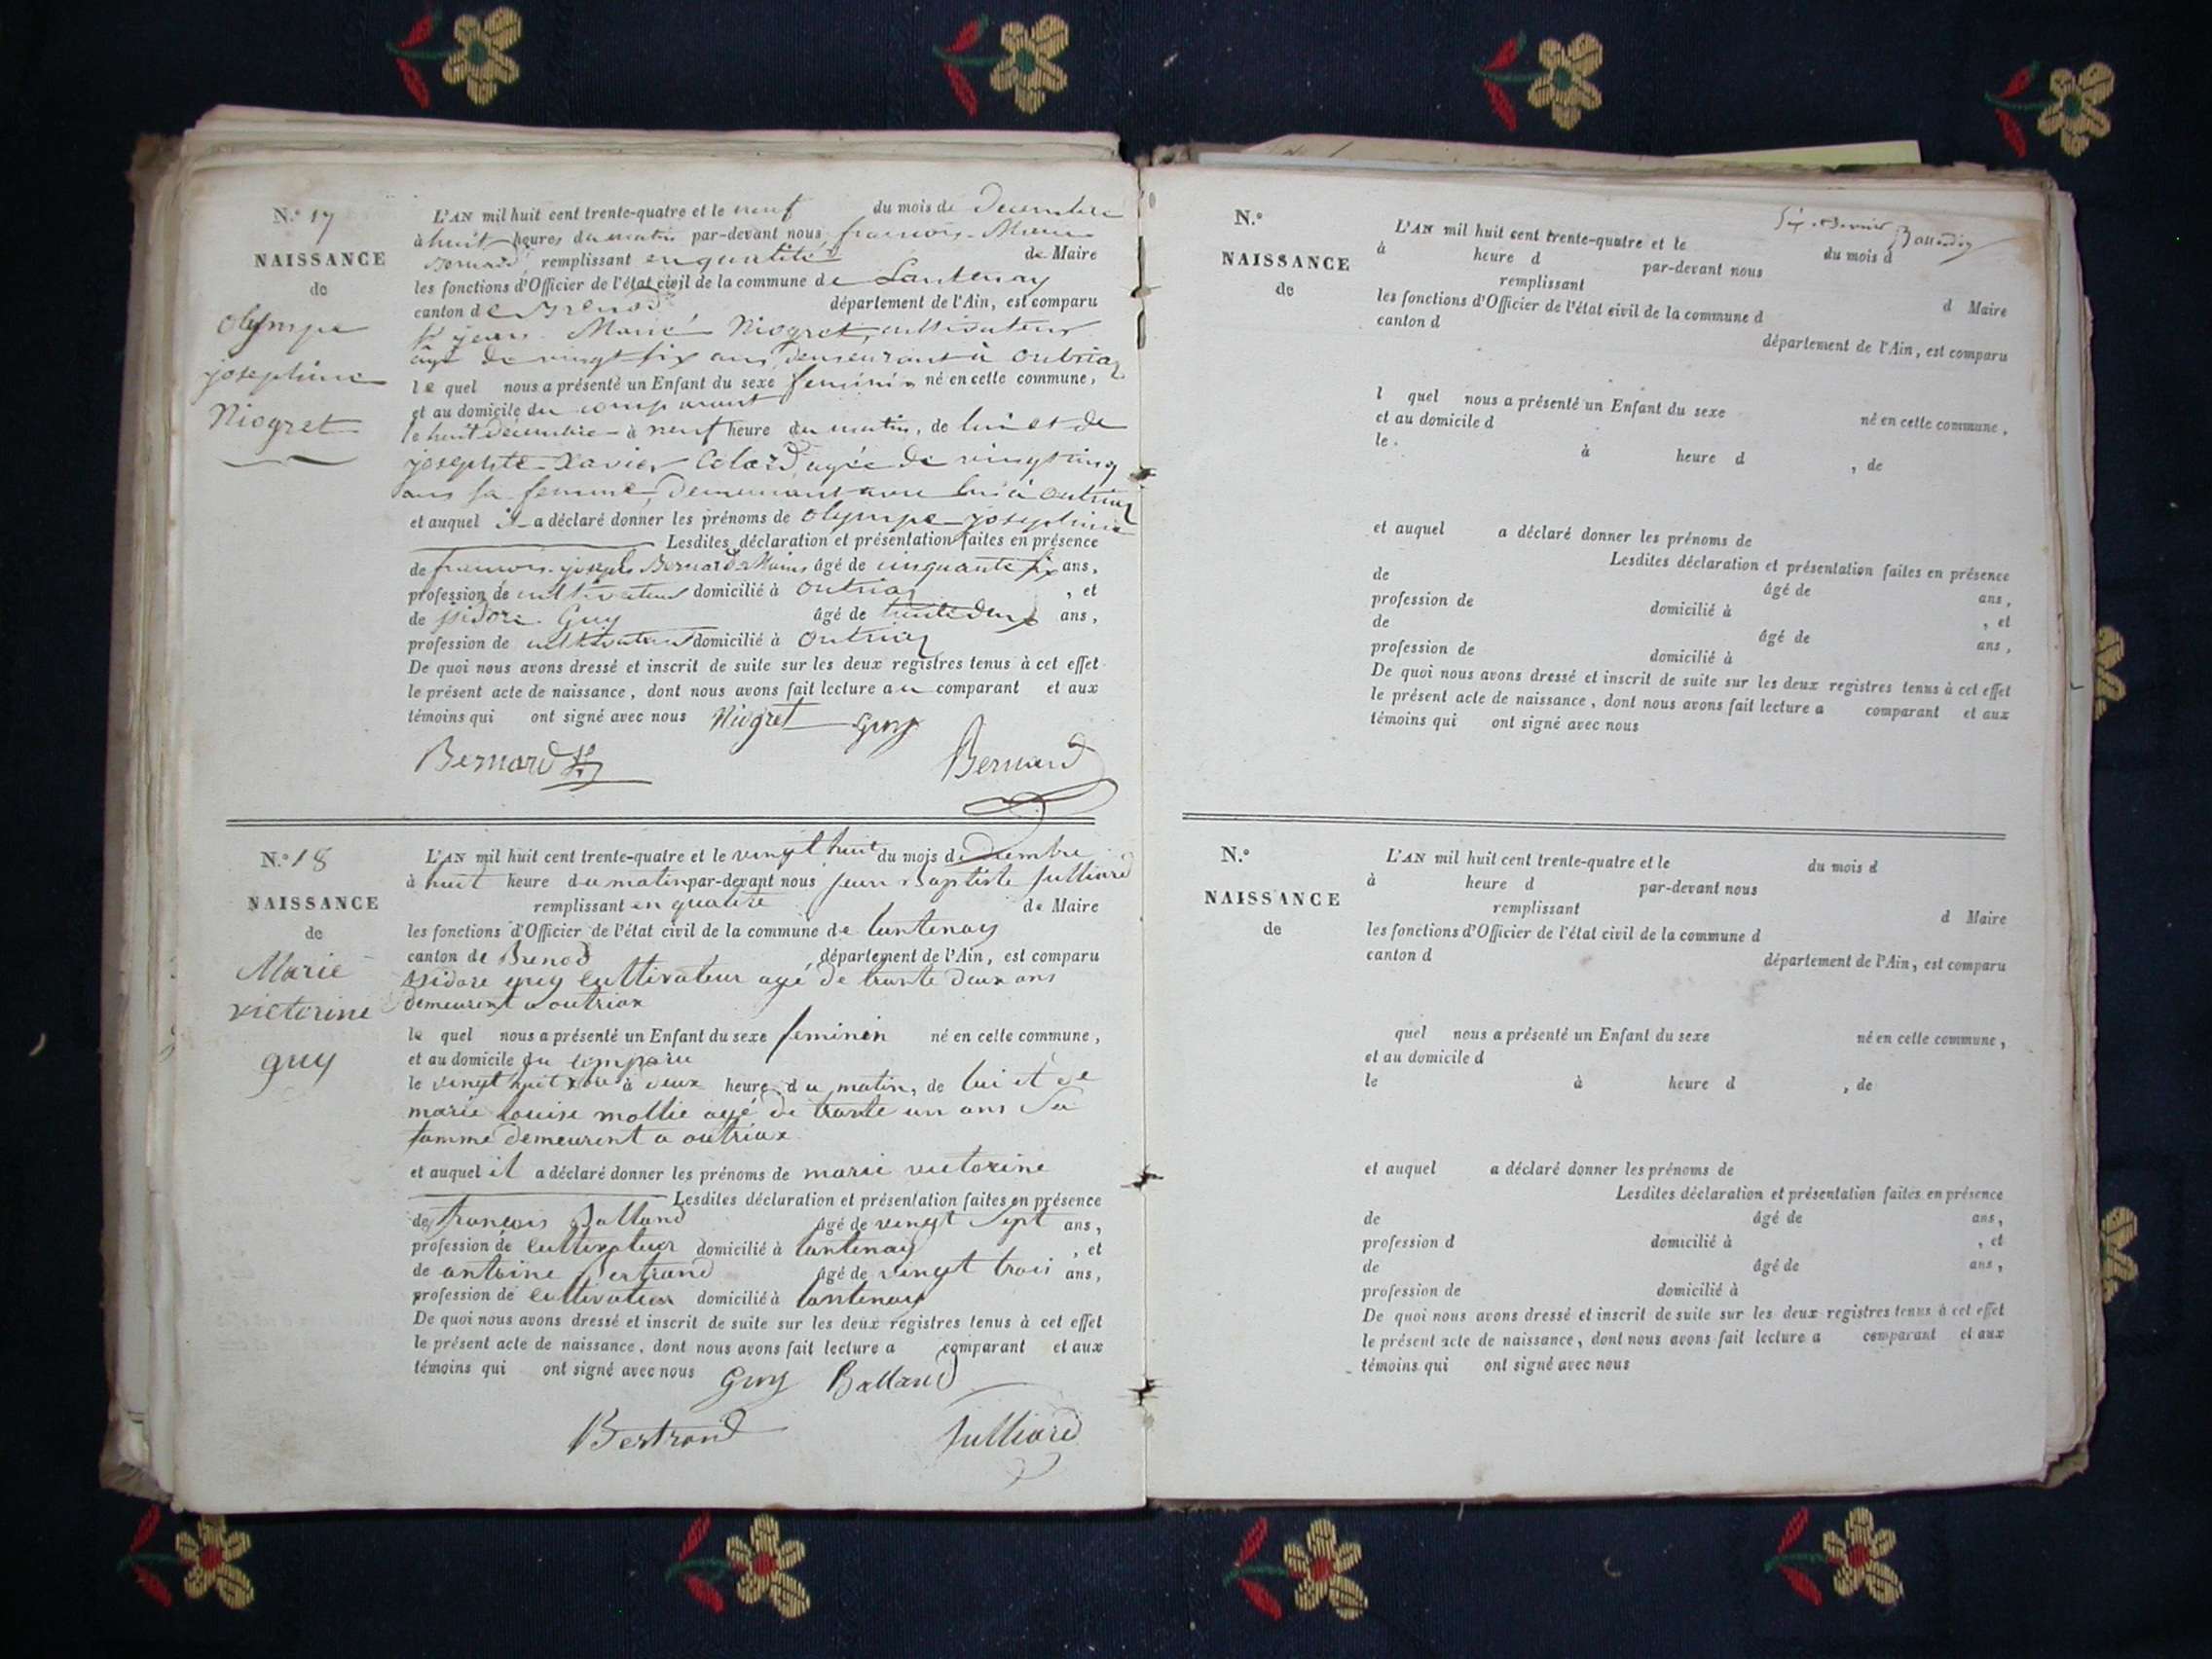 N.º 17
NAISSANCE
de
Olympe
josephine
Niogret
L'AN mil huit cent trente-quatre et le neuf du mois de Decembre
à huit heures du matin par-devant nous francois Marie
Bernard, remplissant en qualité de Maire
les fonctions d'Officier de l'état civil de la commune de Lantenay
canton de Brenod département de l'Ain, est comparu
jean Marie Niogret, cultivateur
âgé de vingt six ans, demeurant à outriaz
le quel nous a présenté un Enfant du sexe feminin né en cette commune,
et au domicile du comparant
le huit decembre à neuf heure du matin, de lui et de
josephte Xavier Colard agée de vingt cinq
ans sa femme, demeurant avec lui à outriaz
et auquel il a déclaré donner les prénoms de olympe josephine
Lesdites déclaration et présentation faites en présence
de francois joseph Bernard âgé de cinquante six ans,
profession de cultivateur domicilié à outriaz, et
de isidore Guy âgé de trente deux ans,
profession de cultivateur domicilié à outriaz
De quoi nous avons dressé et inscrit de suite sur les deux registres tenus à cet effet
le présent acte de naissance, dont nous avons fait lecture au comparant et aux
témoins qui ont signé avec nous Niogret Guy
Bernard Bernard
N.º 18
NAISSANCE
de
Marie
victorine
guy
L'AN mil huit cent trente-quatre et le vingt huit du mois de
à huit heure du matin par-devant nous jean Baptiste Julliard
remplissant en qualité de Maire
les fonctions d'Officier de l'état civil de la commune de lantenay
canton de Brenod département de l'Ain, est comparu
isidore guy cultivateur agé de trante deux ans
demeurent a outriax
le quel nous a présenté un Enfant du sexe feminin né en cette commune,
et au domicile du comparu
le vingt huit xbre à deux heure du matin, de lui et de
marie louise mollie agé de trante un ans sa
famme demeurent a outriax
et auquel il a déclaré donner les prénoms de marie victorine
Lesdites déclaration et présentation faites en présence
de françois Balland âgé de vingt sept ans,
profession de cultivateur domicilié à lantenay, et
de antoine Bertrand âgé de vingt trois ans,
profession de cultivateur domicilié à lantenay
De quoi nous avons dressé et inscrit de suite sur les deux registres tenus à cet effet
le présent acte de naissance, dont nous avons fait lecture a comparant et aux
témoins qui ont signé avec nous Guy Balland
Bertrand Julliard
N.º
NAISSANCE
de
L'AN mil huit cent trente-quatre et le du mois d
à heure d par-devant nous
remplissant d Maire
les fonctions d'Officier de l'état civil de la commune d
canton d département de l'Ain, est comparu
l quel nous a présenté un Enfant du sexe né en cette commune,
et au domicile d
le à heure d , de
et auquel a déclaré donner les prénoms de
Lesdites déclaration et présentation faites en présence
de âgé de ans,
profession de domicilié à , et
de âgé de ans,
profession de domicilié à
De quoi nous avons dressé et inscrit de suite sur les deux registres tenus à cet effet
le présent acte de naissance, dont nous avons fait lecture a comparant et aux
témoins qui ont signé avec nous
N.º
NAISSANCE
de
L'AN mil huit cent trente-quatre et le du mois d
à heure d par-devant nous
remplissant d Maire
les fonctions d'Officier de l'état civil de la commune d
canton d département de l'Ain, est comparu
quel nous a présenté un Enfant du sexe né en cette commune,
et au domicile d
le à heure d , de
et auquel a déclaré donner les prénoms de
Lesdites déclaration et présentation faites en présence
de âgé de ans,
profession d domicilié à , et
de âgé de ans,
profession de domicilié à
De quoi nous avons dressé et inscrit de suite sur les deux registres tenus à cet effet
le présent acte de naissance, dont nous avons fait lecture a comparant et aux
témoins qui ont signé avec nous